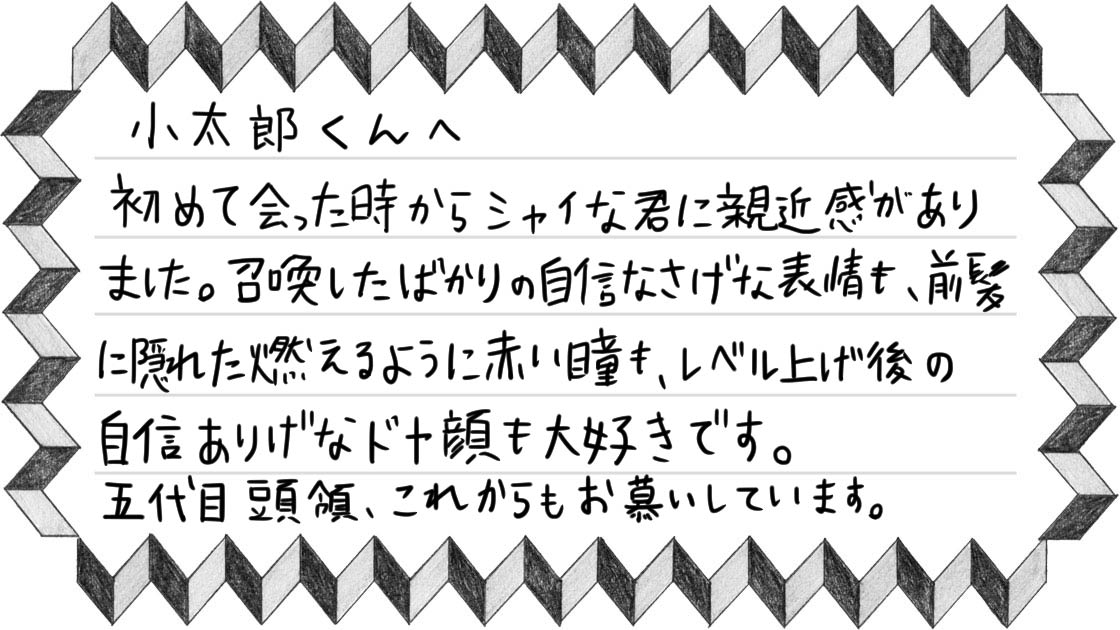 小太郎くんへ
初めて会った時からシャイな君に親近感があり
ました。召喚したばかりの自信なさげな表情も、前髪
に隠れた燃えるように赤い瞳も、レベル上げ後の
自信ありげなドヤ顔も大好きです。
五代目頭領、これからもお慕いしています。